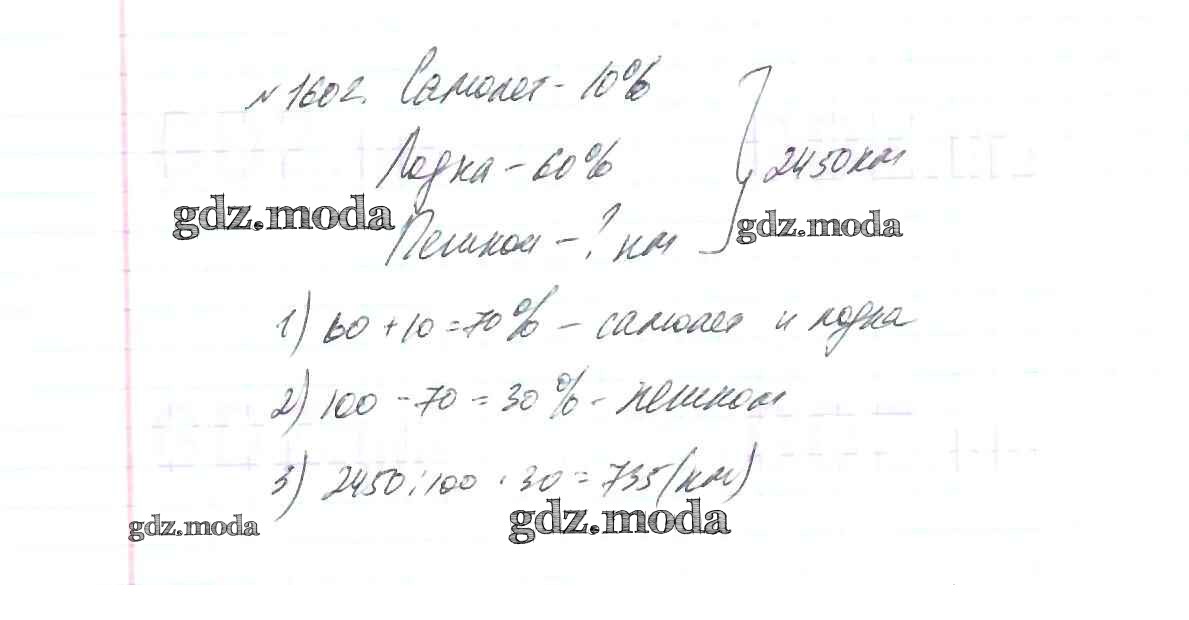 №1602. Самолет - 10%
Лодка - 60%
2450 км
gdz.moda
gdz.moda
Пешком - ? км
1) 60 + 10 = 70% - самолет и лодка
2) 100 - 70 = 30% - пешком
3) 2450 : 100 · 30 = 735 (км)
gdz.moda
gdz.moda